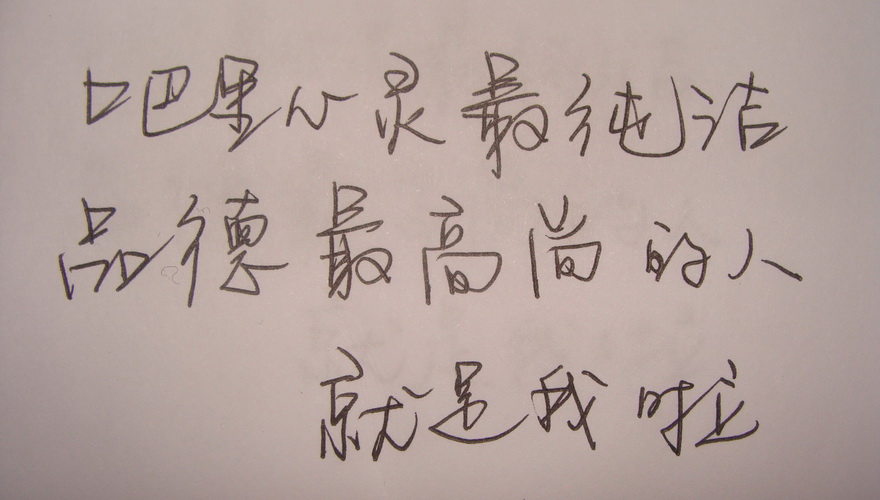 吧里心灵最纯洁
品德最高尚的人
就是我啦